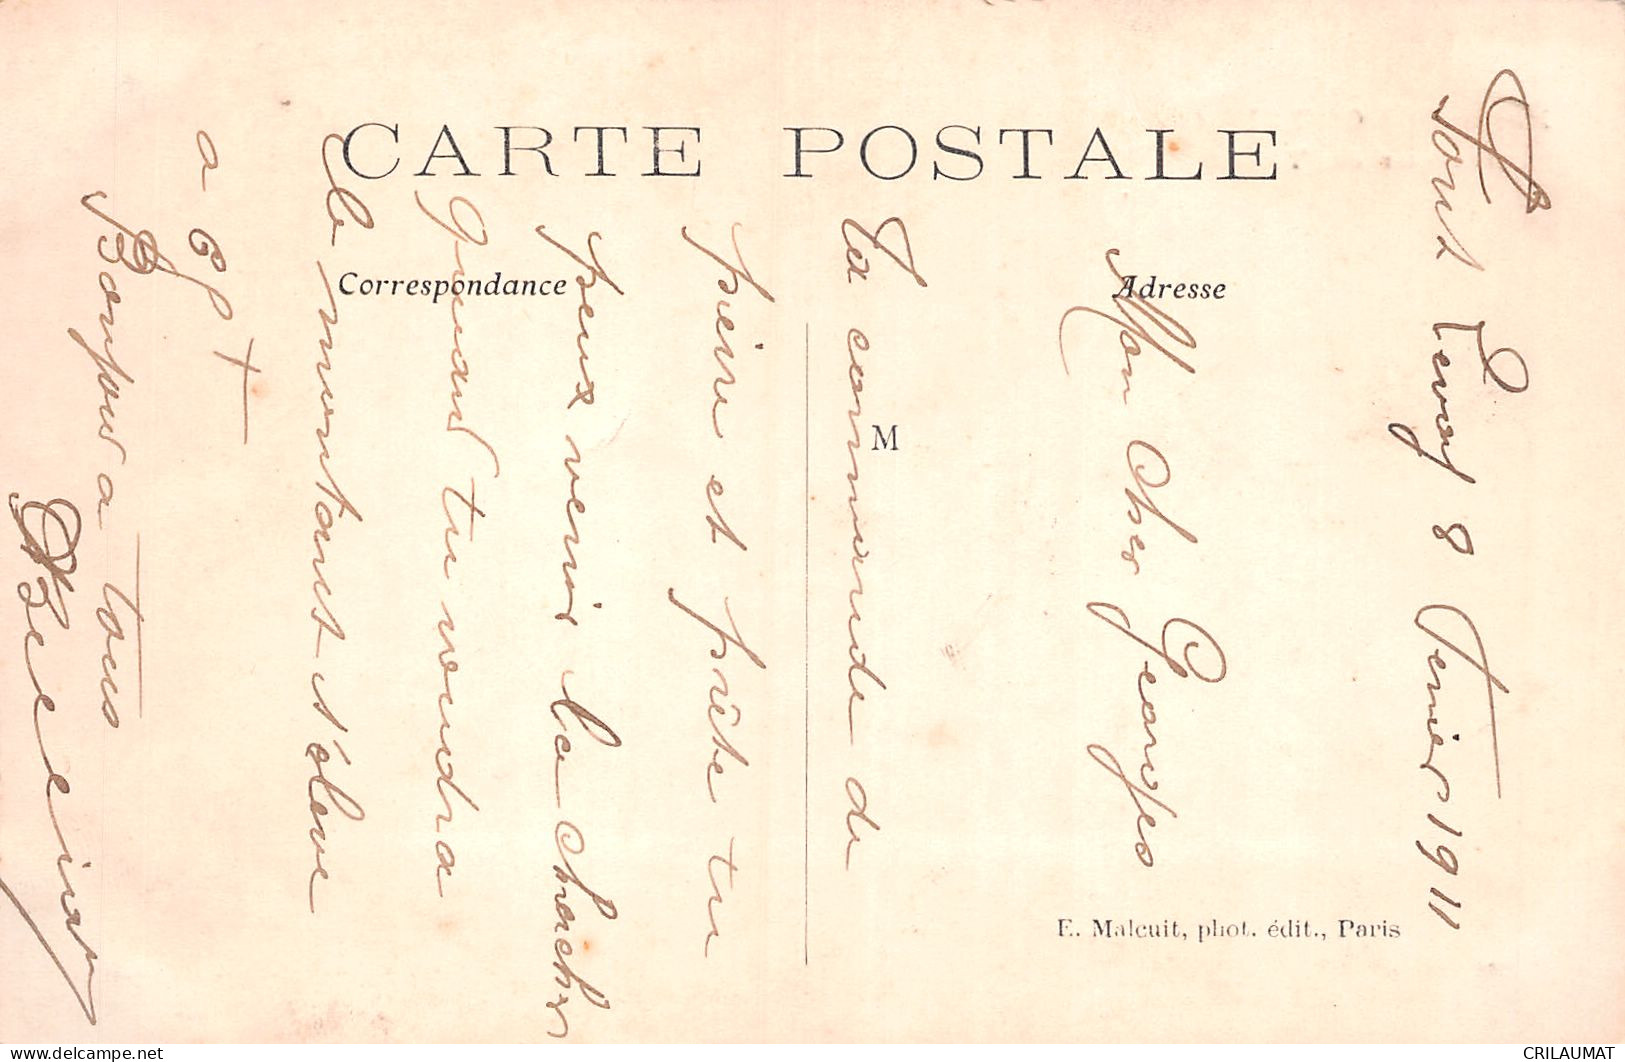 CARTE POSTALE
Correspondance
Adresse
M
E. Malcuit, phot. édit., Paris
8 Fevrier 1911
Mon cher Georges
La commande de
pierre et prête tu
peux venir la chercher
quand tu voudra
le montant s'éleve
a 6f
Bonjour a tous
delcampe.net
CRILAUMAT